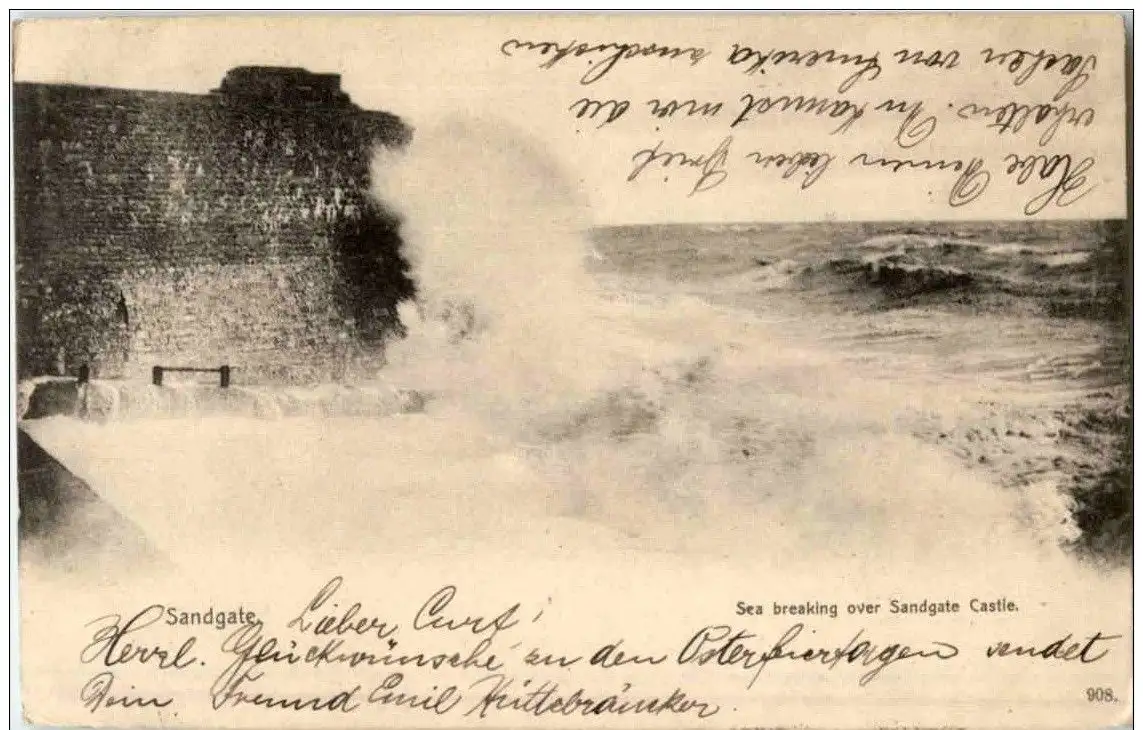 Habe Deinen lieben Brief
erhalten. Du kannst mir die
Sachen von Amerika zuschicken
Sandgate.
Sea breaking over Sandgate Castle.
Lieber Curt!
Herzl. Glückwünsche zu den Osterfeiertagen sendet
Dein Freund Emil
908.